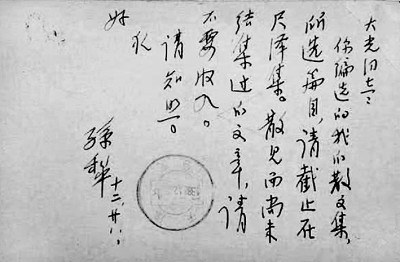 大光同志：
你编选的我的散文集，
所选篇目，请截止在
尺泽集。散见而尚未
结集过的文章，请
不要收入。
请知照。
祝
好
孫犁
十二、廿八、